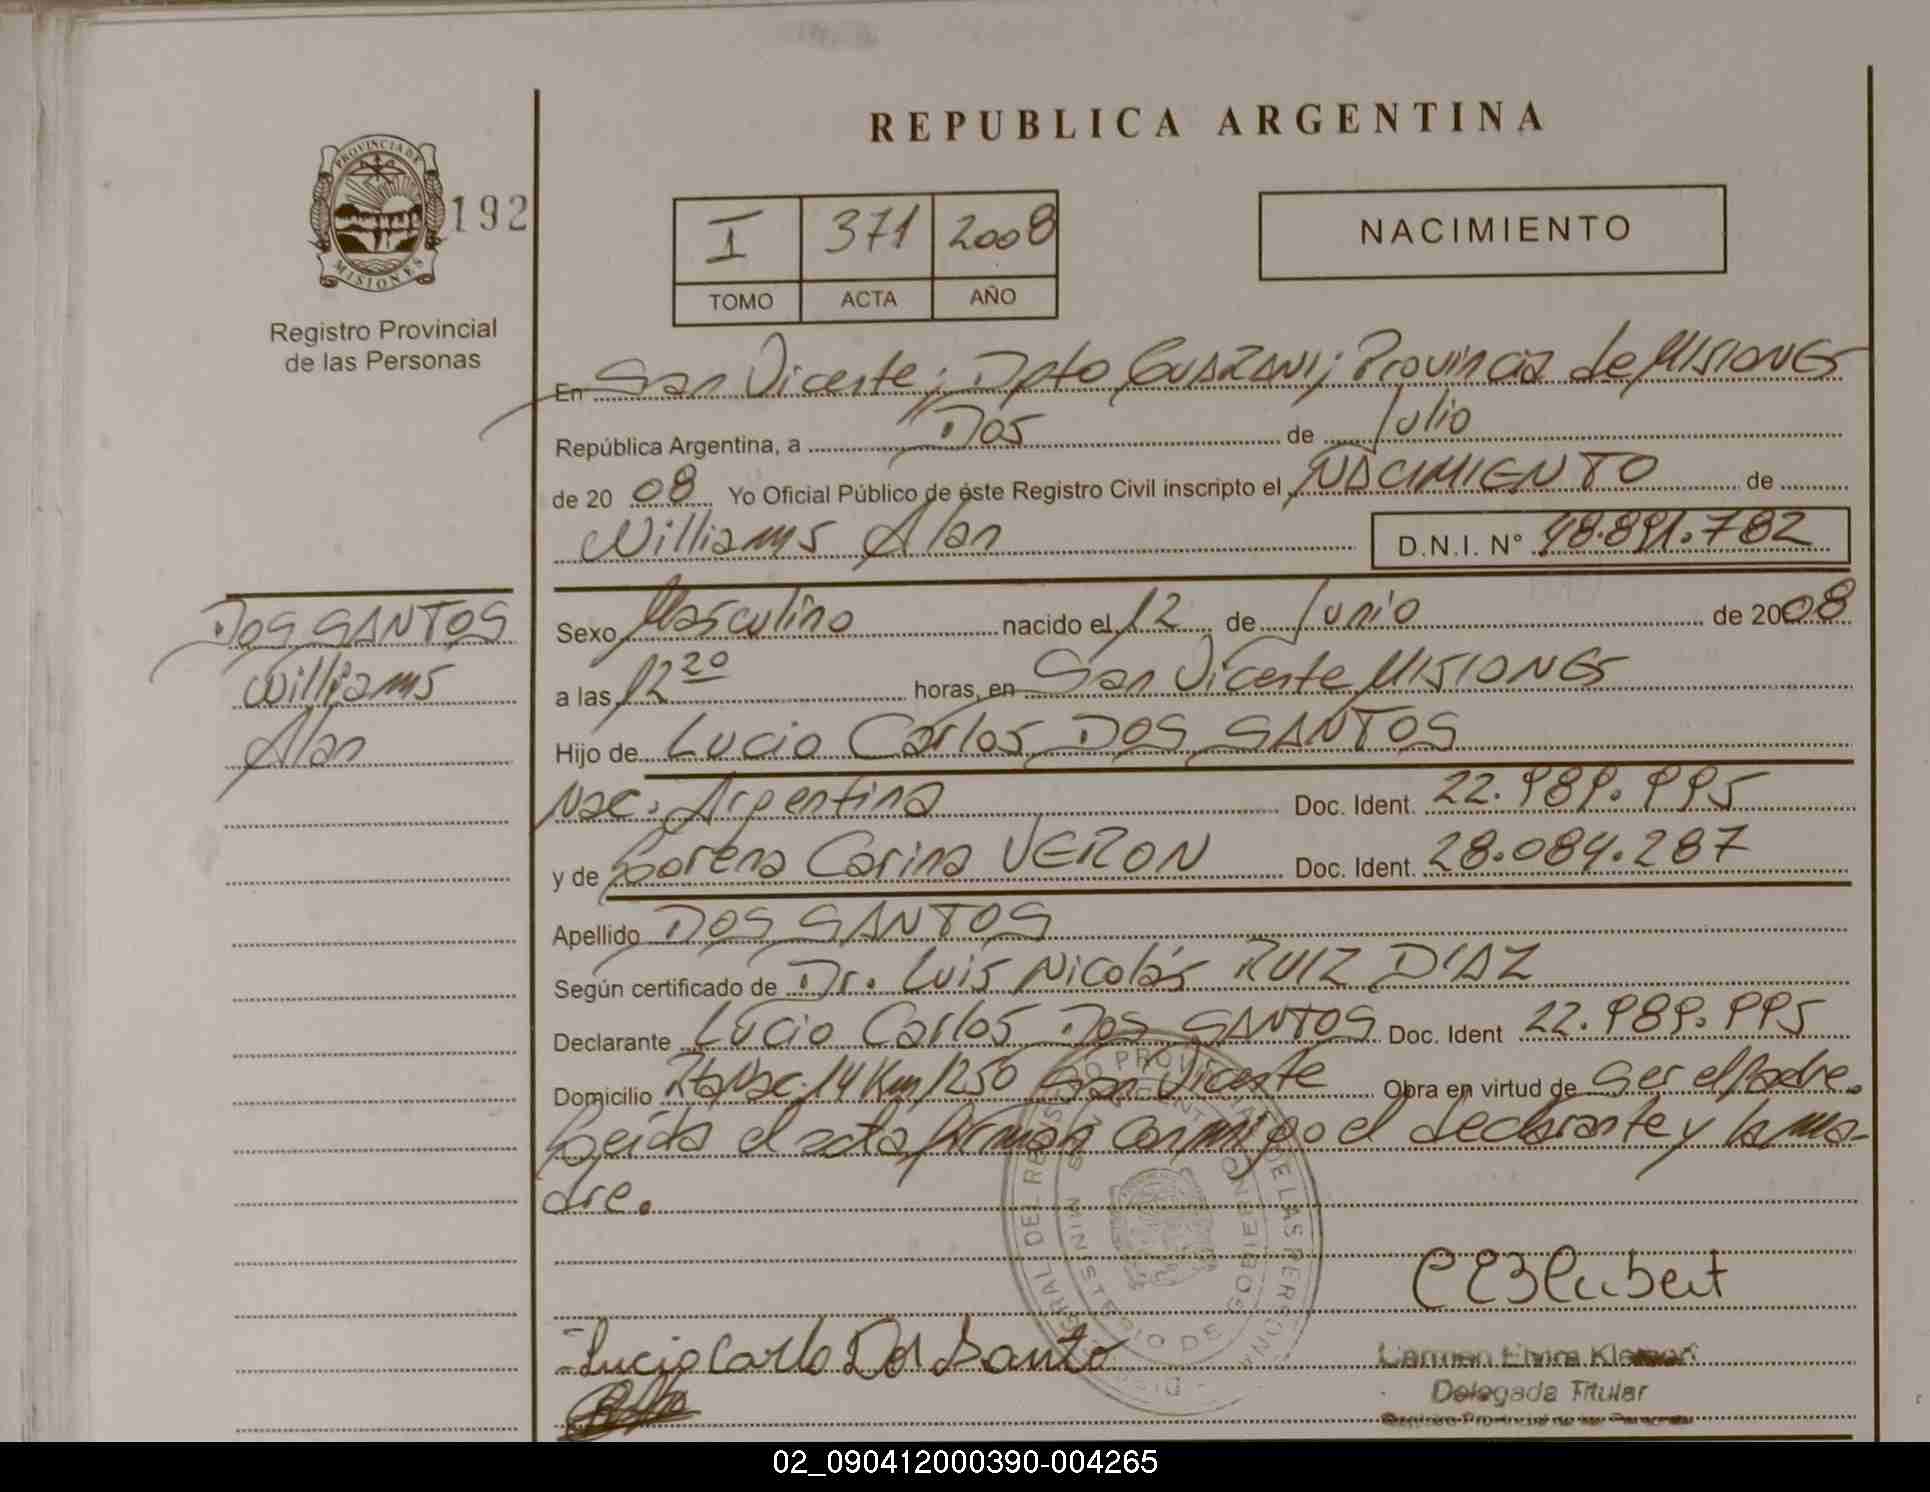 REPUBLICA ARGENTINA
PROVINCIA DE
MISIONES
192
Registro Provincial
de las Personas
I 371 2008
TOMO ACTA AÑO
NACIMIENTO
En San Vicente; Dpto GUARANI; Provincia de MISIONES
República Argentina, a Dos de Julio
de 20 08 Yo Oficial Público de éste Registro Civil inscripto el NACIMIENTO de
Williams Alan D.N.I. N° 48.891.782
DOS SANTOS
Williams
Alan
Sexo Masculino nacido el 12 de Junio de 2008
a las 12 20 horas, en San Vicente MISIONES
Hijo de Lucio Carlos DOS SANTOS
Nac. Argentina Doc. Ident. 22.989.995
y de Lorena Carina VERON Doc. Ident. 28.084.287
Apellido DOS SANTOS
Según certificado de Dr. Luis Nicolás RUIZ DIAZ
Declarante Lucio Carlos DOS SANTOS Doc. Ident 22.989.995
Domicilio Rta Nac. 14 Km 1250 San Vicente Obra en virtud de Ser el Padre.
Leida el acta firman conmigo el declarante y la ma-
dre.
Lucio Carlo Dos Santo
Carmen Elvira
Delegada Titular
02_090412000390-004265